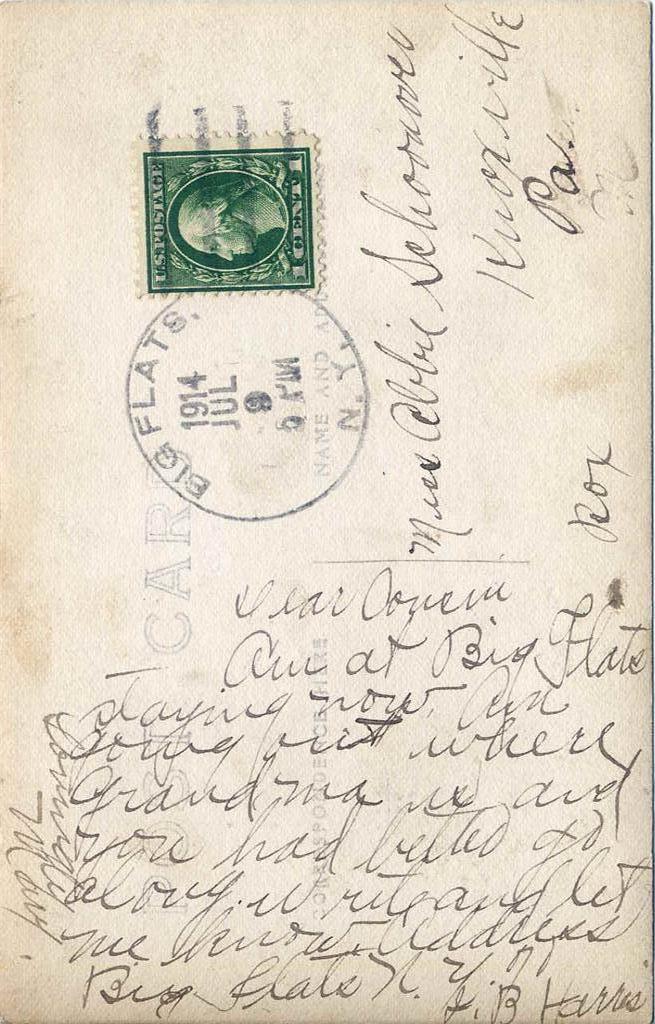 POST CARD
CORRESPONDENCE HERE
NAME AND ADD
U.S. POSTAGE
1 CENT 1
BIG FLATS,
N.Y.
1914
JUL
9
PM
Miss Abbie Schoonover
Knoxville
Pa.
Box
Dear Cousin
Am at Big Flats
staying now. Am
going out where
Grandma is and
you had better go
along. write and let
me know. Address
Big Flats N. Y.
J. B Harris
Lovingly
Mary.